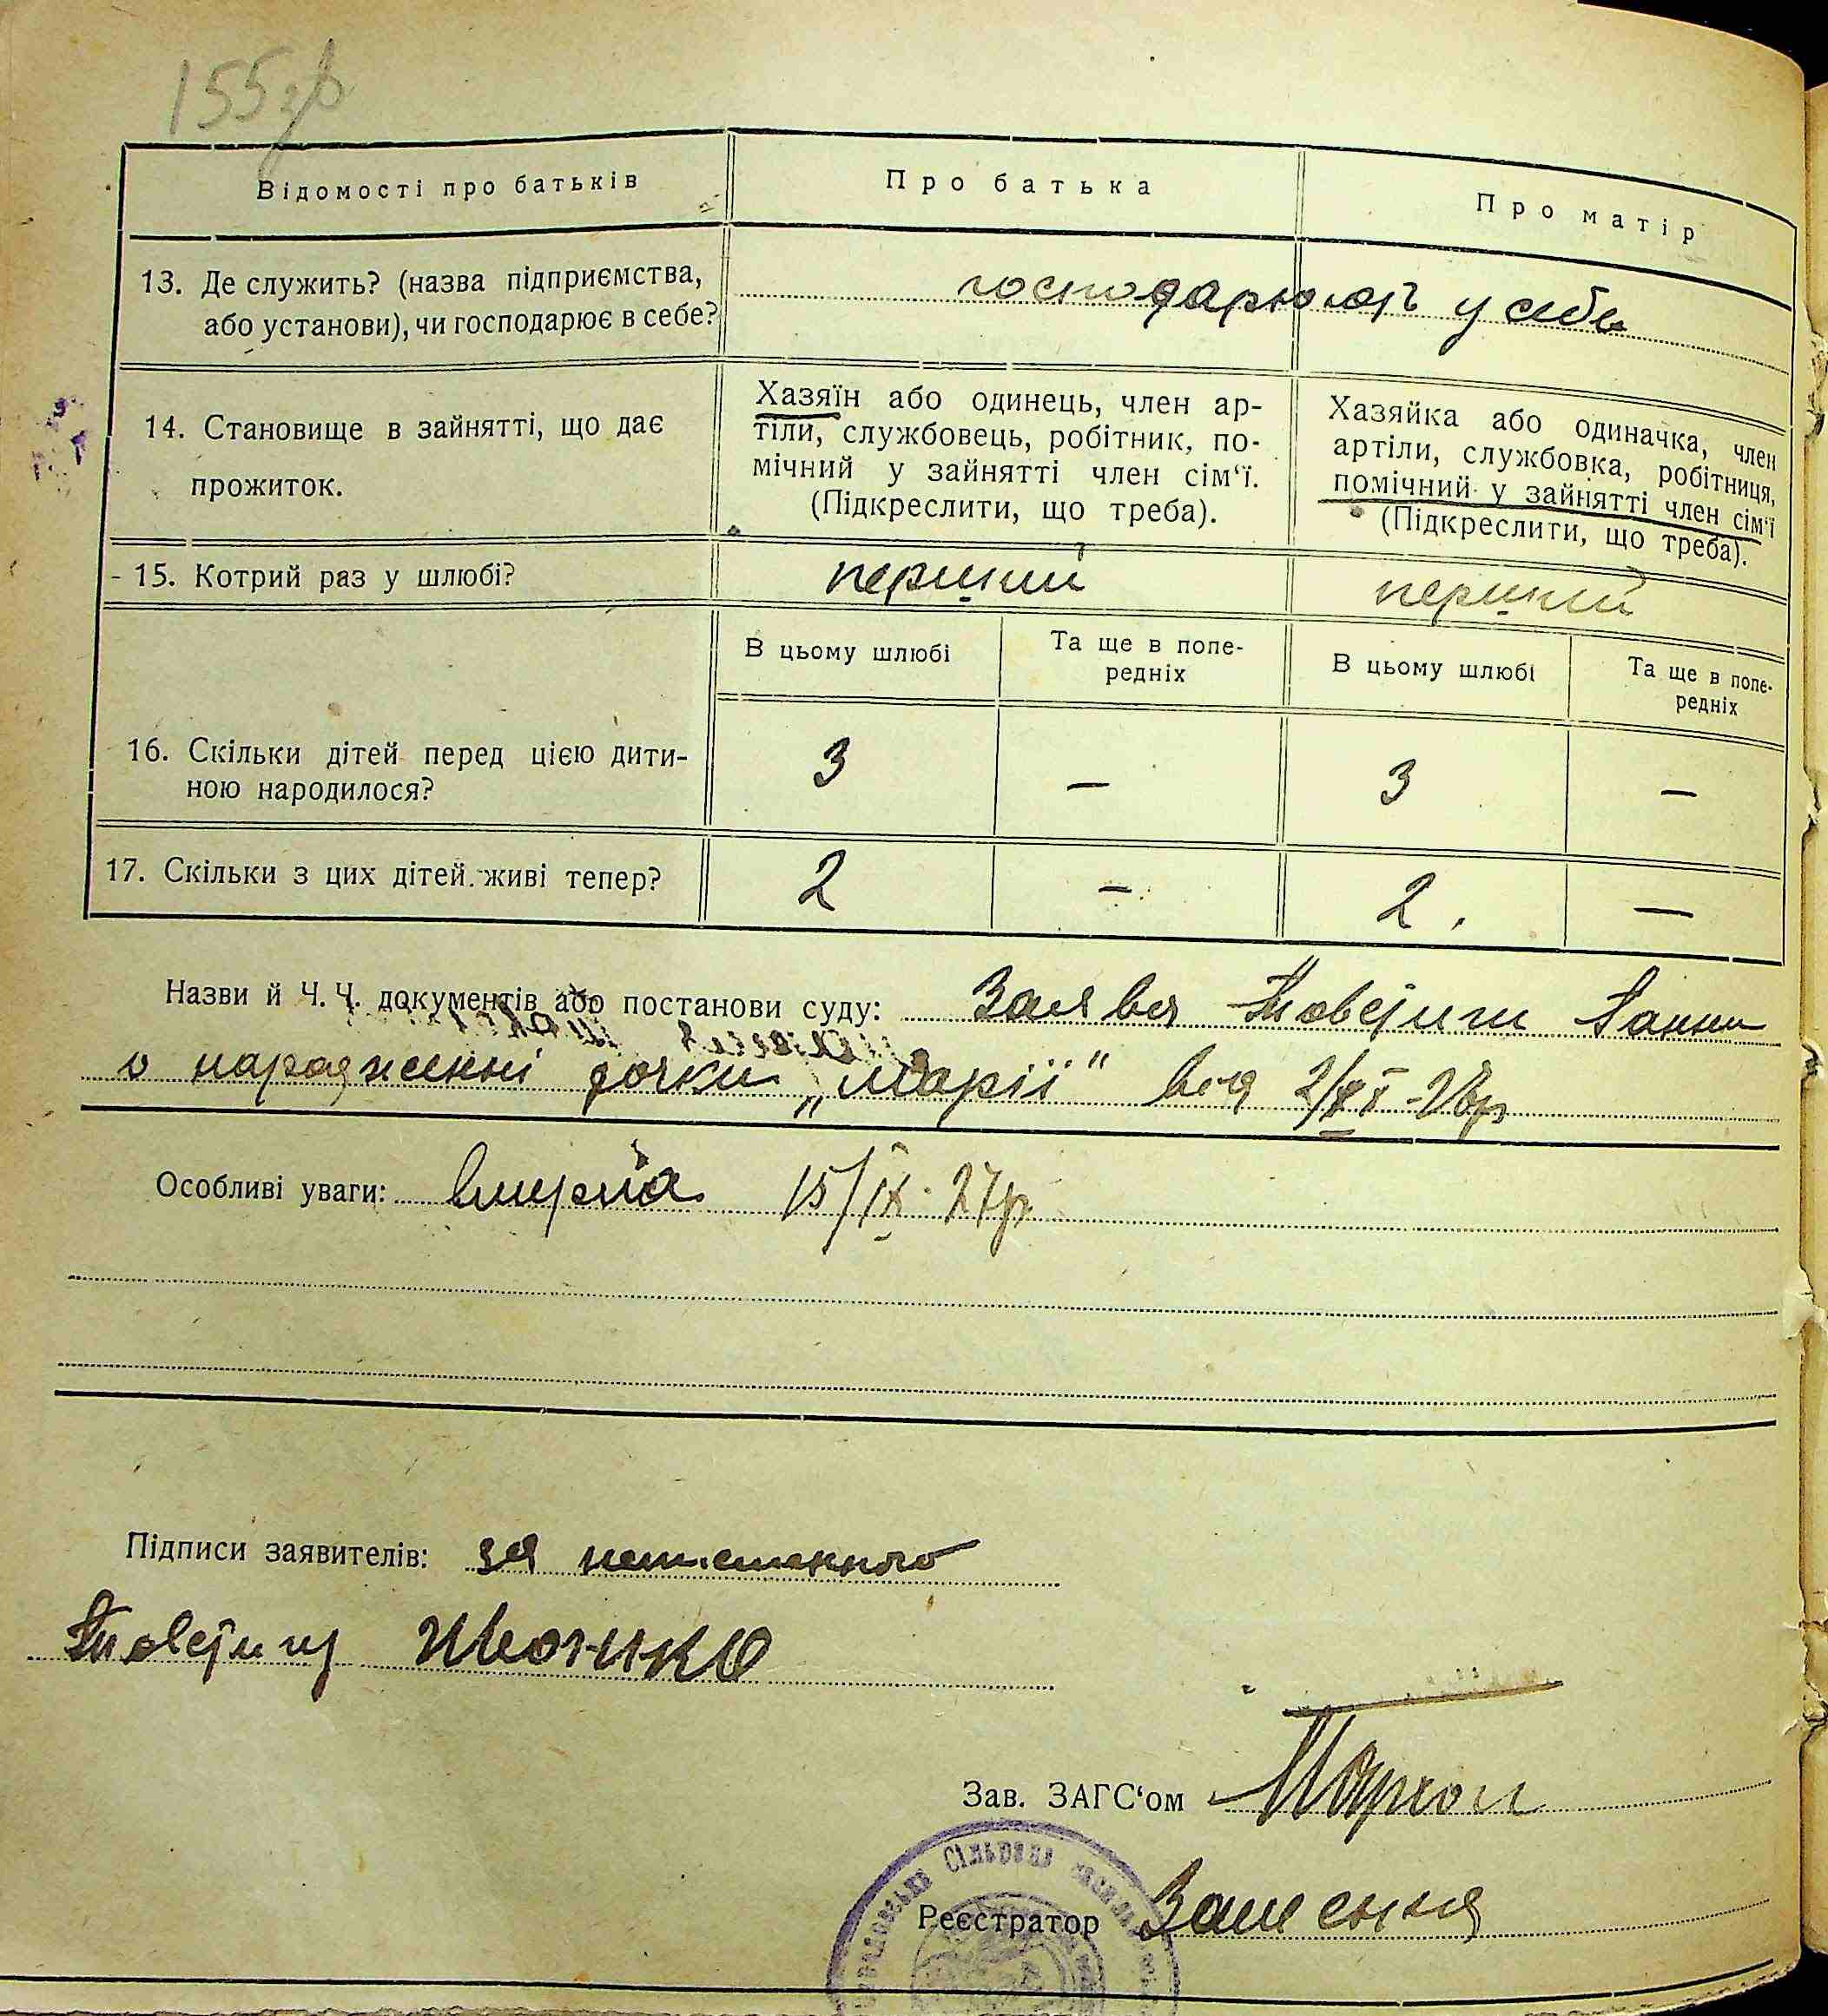 155 зв
Відомості про батьків
Про батька
Про матір
13. Де служить? (назва підприємства,
або установи), чи господарює в себе?
господарюють у себе
14. Становище в зайнятті, що дає
прожиток.
Хазяїн або одинець, член ар-
тіли, службовець, робітник, по-
мічний у зайнятті член сім‘ї.
(Підкреслити, що треба).
Хазяйка або одиначка, член
артіли, службовка, робітниця,
помічний у зайнятті член сім‘ї
(Підкреслити, що треба).
15. Котрий раз у шлюбі?
перший
перший
В цьому шлюбі
Та ще в попе-
редніх
В цьому шлюбі
Та ще в попе-
редніх
16. Скільки дітей перед цією дити-
ною народилося?
3
—
3
—
17. Скільки з цих дітей живі тепер?
2
—
2.
—
Назви й Ч. Ч. документів або постанови суду: Заява Ганни
о народженні дочки „Марії“ від
Особливі уваги: вмерла 15/IX-27р
Підписи заявителів: за неписьменного
Зав. ЗАГС‘ом
Реєстратор
Сільрада